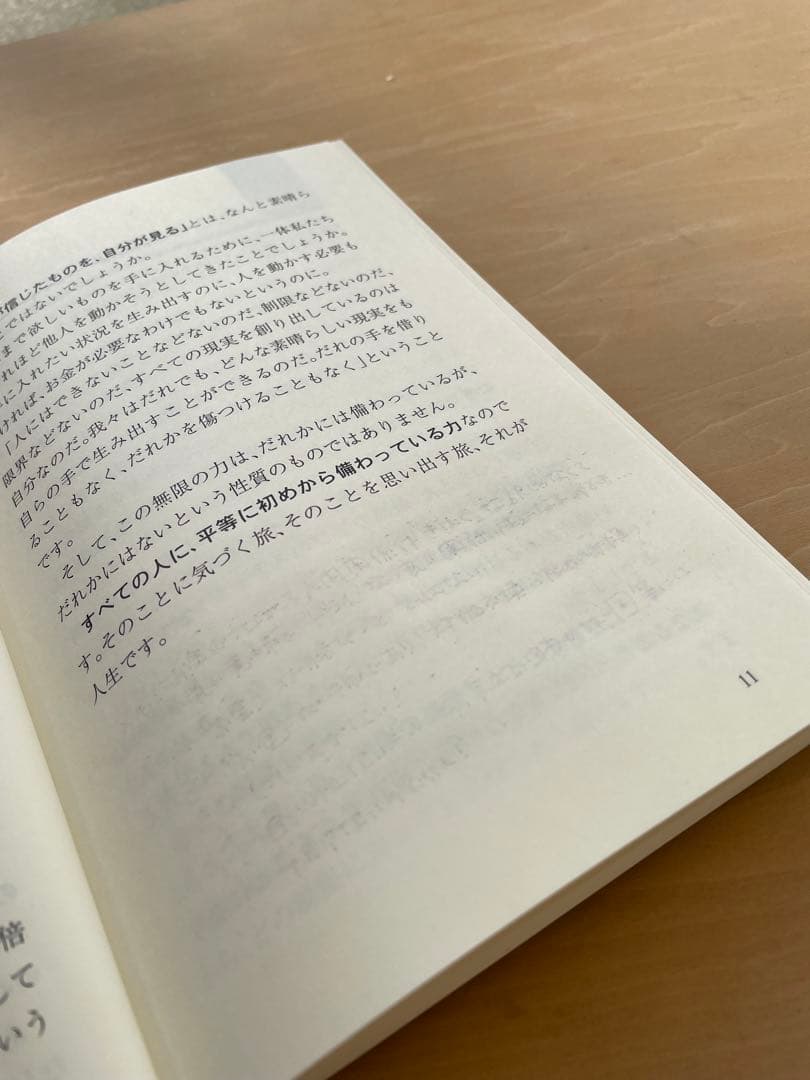 信じたものを、自分が見る」とは、なんと素晴ら
とではないでしょうか。
まで欲しいものを手に入れるために、一体私たち
れほど他人を動かそうとしてきたことでしょうか。
に入れたい状況を生み出すのに、人を動かす必要も
ければ、お金が必要なわけでもないというのに。
「人にはできないことなどないのだ、制限などないのだ、
限界などないのだ、すべての現実を創り出しているのは
自分なのだ。我々はだれでも、どんな素晴らしい現実をも
自らの手で生み出すことができるのだ。だれの手を借り
ることもなく、だれかを傷つけることもなく」ということ
です。
そして、この無限の力は、だれかには備わっているが、
だれかにはないという性質のものではありません。
すべての人に、平等に初めから備わっている力なので
す。そのことに気づく旅、そのことを思い出す旅、それが
人生です。
11
倍
して
いう